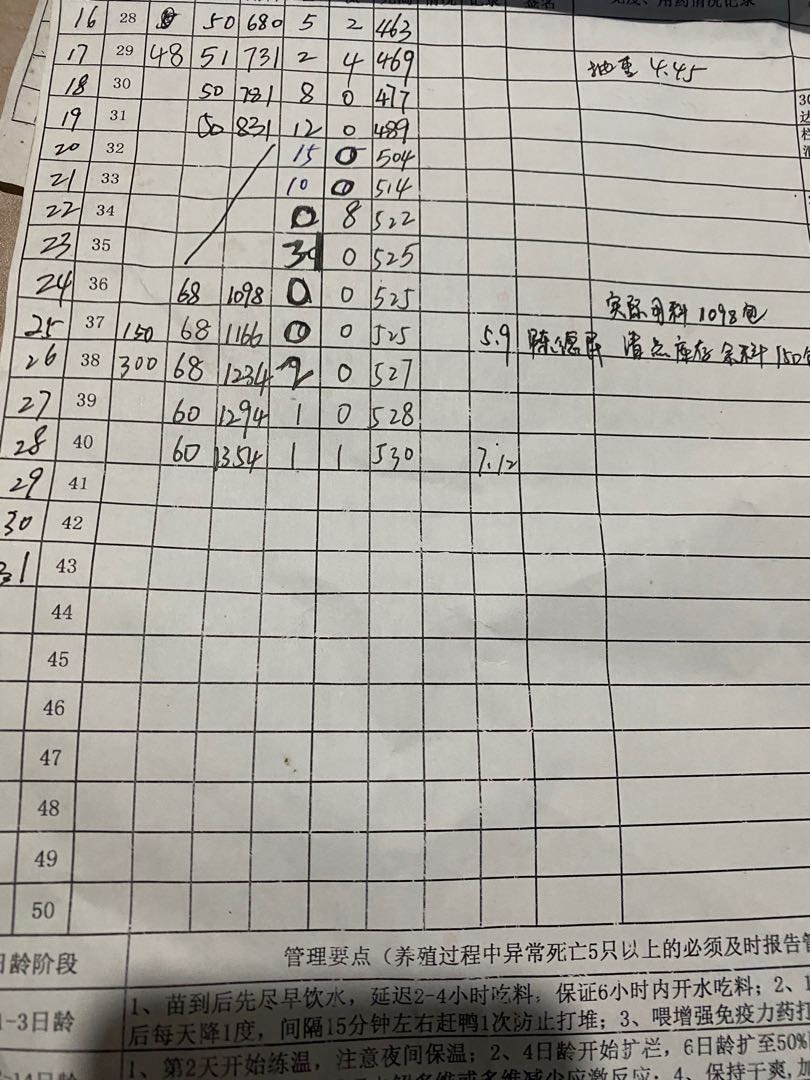 签名 免疫、用药情况记录
16 28 50 680 5 2 463
17 29 48 51 731 2 4 469 抽重 4.45
18 30 50 781 8 0 477
19 31 50 831 12 0 489
20 32 15 0 504
21 33 10 0 514
22 34 0 8 522
23 35 3 0 525
24 36 68 1098 0 0 525 实际用料 1098包
25 37 150 68 1166 0 0 525 5.9 清点库存余料 150包
26 38 300 68 1234 2 0 527
27 39 60 1294 1 0 528
28 40 60 1354 1 1 530 7.12
29 41
30 42
31 43
44
45
46
47
48
49
50
日龄阶段 管理要点（养殖过程中异常死亡5只以上的必须及时报告
1-3日龄 1、苗到后先尽早饮水，延迟2-4小时吃料，保证6小时内开水吃料；2、
后每天降1度，间隔15分钟左右赶鸭1次防止打堆；3、喂增强免疫力药
14日龄 1、第2天开始练温，注意夜间保温；2、4日龄开始扩栏，6日龄扩至50%
多维减少应激反应；4、保持干爽,